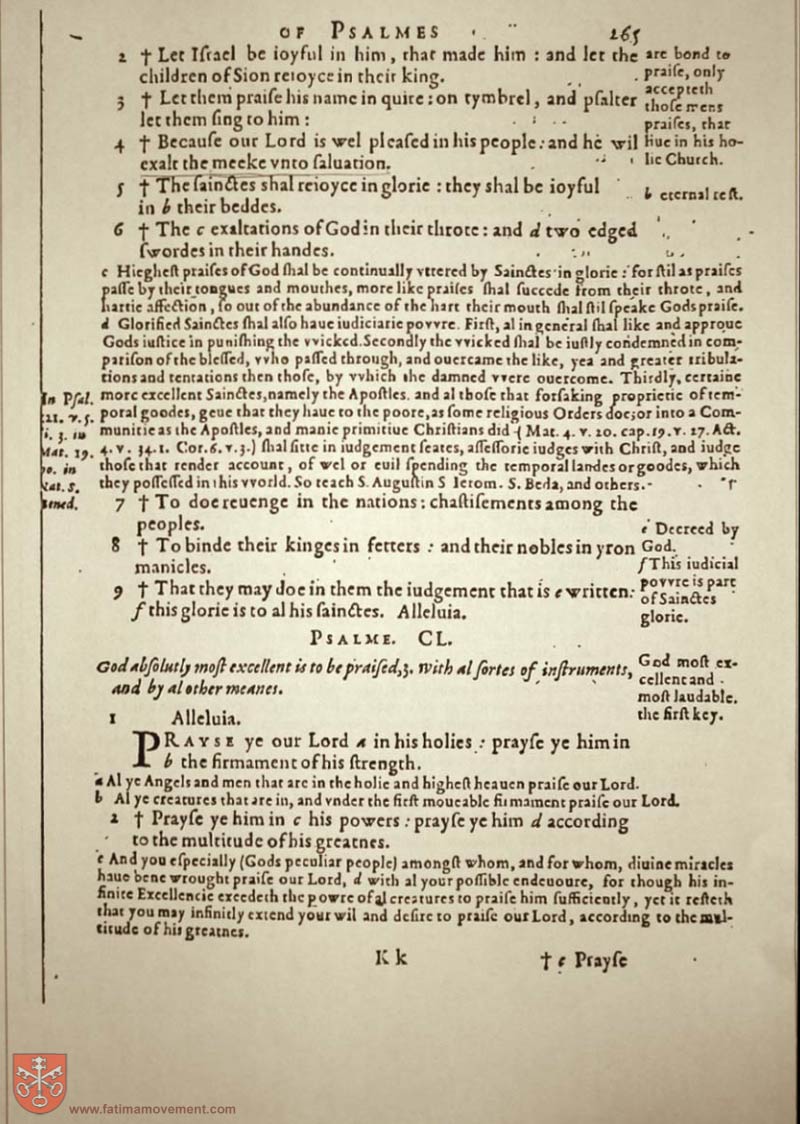 OF PSALMES 265
2 † Let Iſrael be ioyful in him, that made him : and let the
children of Sion reioyce in their king.
3 † Let them praiſe his name in quire : on tymbrel, and pſalter
let them ſing to him :
4 † Becauſe our Lord is wel pleaſed in his people : and he wil
exalt the meeke vnto ſaluation.
5 † The ſainctes shal reioyce in glorie : they shal be ioyful
in b their beddes.
6 † The c exaltations of God in their throte : and d two edged
ſwordes in their handes.
are bond to
praiſe, only
accepteth
thoſe mens
praiſes, that
liue in his ho-
lie Church.
b eternal reſt.
c Hiegheſt praiſes of God ſhal be continually vttered by Sainctes in glorie : for ſtil as praiſes
paſſe by their tongues and mouthes, more like praiſes ſhal ſuccede from their throte, and
hartie affection, ſo out of the abundance of the hart their mouth ſhal ſtil ſpeake Gods praiſe.
d Glorified Sainctes ſhal alſo haue iudiciarie povvre. Firſt, al in general ſhal like and approue
Gods iuſtice in puniſhing the vvicked. Secondly the vvicked ſhal be iuſtly condemned in com-
pariſon of the bleſſed, vvho paſſed through, and ouercame the like, yea and greater tribula-
tions and tentations then thoſe, by vvhich the damned vvere ouercome. Thirdly, certaine
more excellent Sainctes, namely the Apoſtles. and al thoſe that forſaking proprietie of tem-
poral goodes, geue that they haue to the poore, as ſome religious Orders doe; or into a Com-
munitie as the Apoſtles, and manie primitiue Chriſtians did (Mat. 4. v. 20. cap. 19. v. 27. Act.
4. v. 34. 1. Cor. 6. v. 3.) ſhal ſitte in iudgement ſeates, aſſeſſorie iudges with Chriſt, and iudge
thoſe that render account, of wel or euil ſpending the temporal landes or goodes, which
they poſſeſſed in this vvorld. So teach S. Auguſtin S Ierom. S. Beda, and others.
In Pſal.
121. v. 5.
i. 3. in
Mat. 19.
in
cat. 5.
7 † To doe reuenge in the nations : chaſtiſements among the
peoples.
8 † To binde their kinges in fetters : and their nobles in yron
manicles.
9 † That they may doe in them the iudgement that is e written :
f this glorie is to al his ſainctes. Alleluia.
e Decreed by
God.
f This iudicial
povvre is part
of Sainctes
glorie.
PSALME. CL.
God abſolutly moſt excellent is to be praiſed, 3. with al ſortes of inſtruments,
and by al other meanes.
God moſt ex-
cellent and
moſt laudable.
the firſt key.
1 Alleluia.
PRAYSE ye our Lord a in his holies : prayſe ye him in
b the firmament of his ſtrength.
a Al ye Angels and men that are in the holie and higheſt heauen praiſe our Lord.
b Al ye creatures that are in, and vnder the firſt moueable firmament praiſe our Lord.
2 † Prayſe ye him in c his powers : prayſe ye him d according
to the multitude of his greatnes.
c And you eſpecially (Gods peculiar people) amongſt whom, and for whom, diuine miracles
haue bene wrought praiſe our Lord, d with al your poſſible endeuoure, for though his in-
finite Excellencie excedeth the powre of al creatures to praiſe him ſufficiently, yet it reſteth
that you may infinitly extend your wil and deſire to praiſe our Lord, according to the mul-
titude of his greatnes.
K k † e Prayſe
www.fatimamovement.com